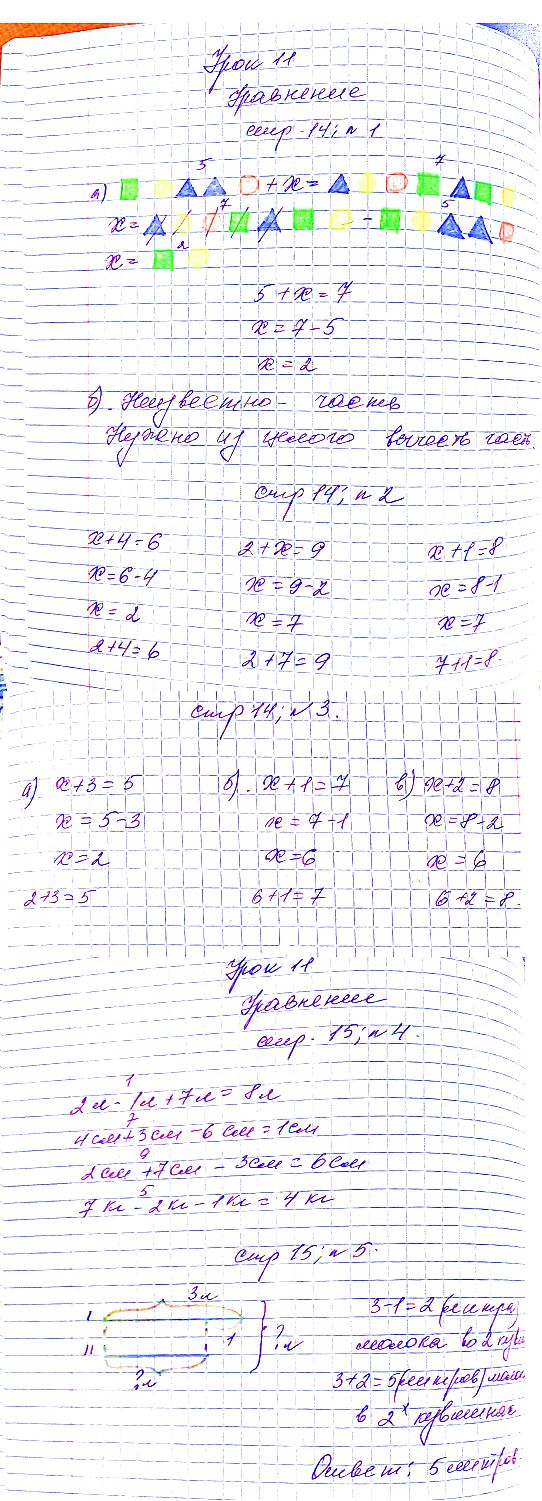 Урок 11
Уравнение
стр. 14; n 1
5 7
а) + x =
7 5
x = -
2
x =
5 + x = 7
x = 7 - 5
x = 2
б). Неизвестно - часть
Нужно из целого вычесть част.
стр 14; n 2
x+4=6 2+x=9 x+1=8
x=6-4 x=9-2 x=8-1
x=2 x=7 x=7
2+4=6 2+7=9 7+1=8.
стр 14; n 3.
а) x+3=5 б). x+1=7 в) x+2=8
x=5-3 x=7-1 x=8-2
x=2 x=6 x=6
2+3=5 6+1=7 6+2=8.
Урок 11
Уравнение
стр. 15; n 4.
1
2л - 1л + 7л = 8л
7
4см+3см - 6см = 1см
9
2см + 7см - 3см = 6см
5
7кг - 2кг - 1кг = 4кг
стр 15; n 5.
3л
I
II 1 ?л
?л
3-1=2 (литра)
молока во 2 кувш
3+2=5 (литров) моло
в 2х кувшинах
Ответ: 5 литров